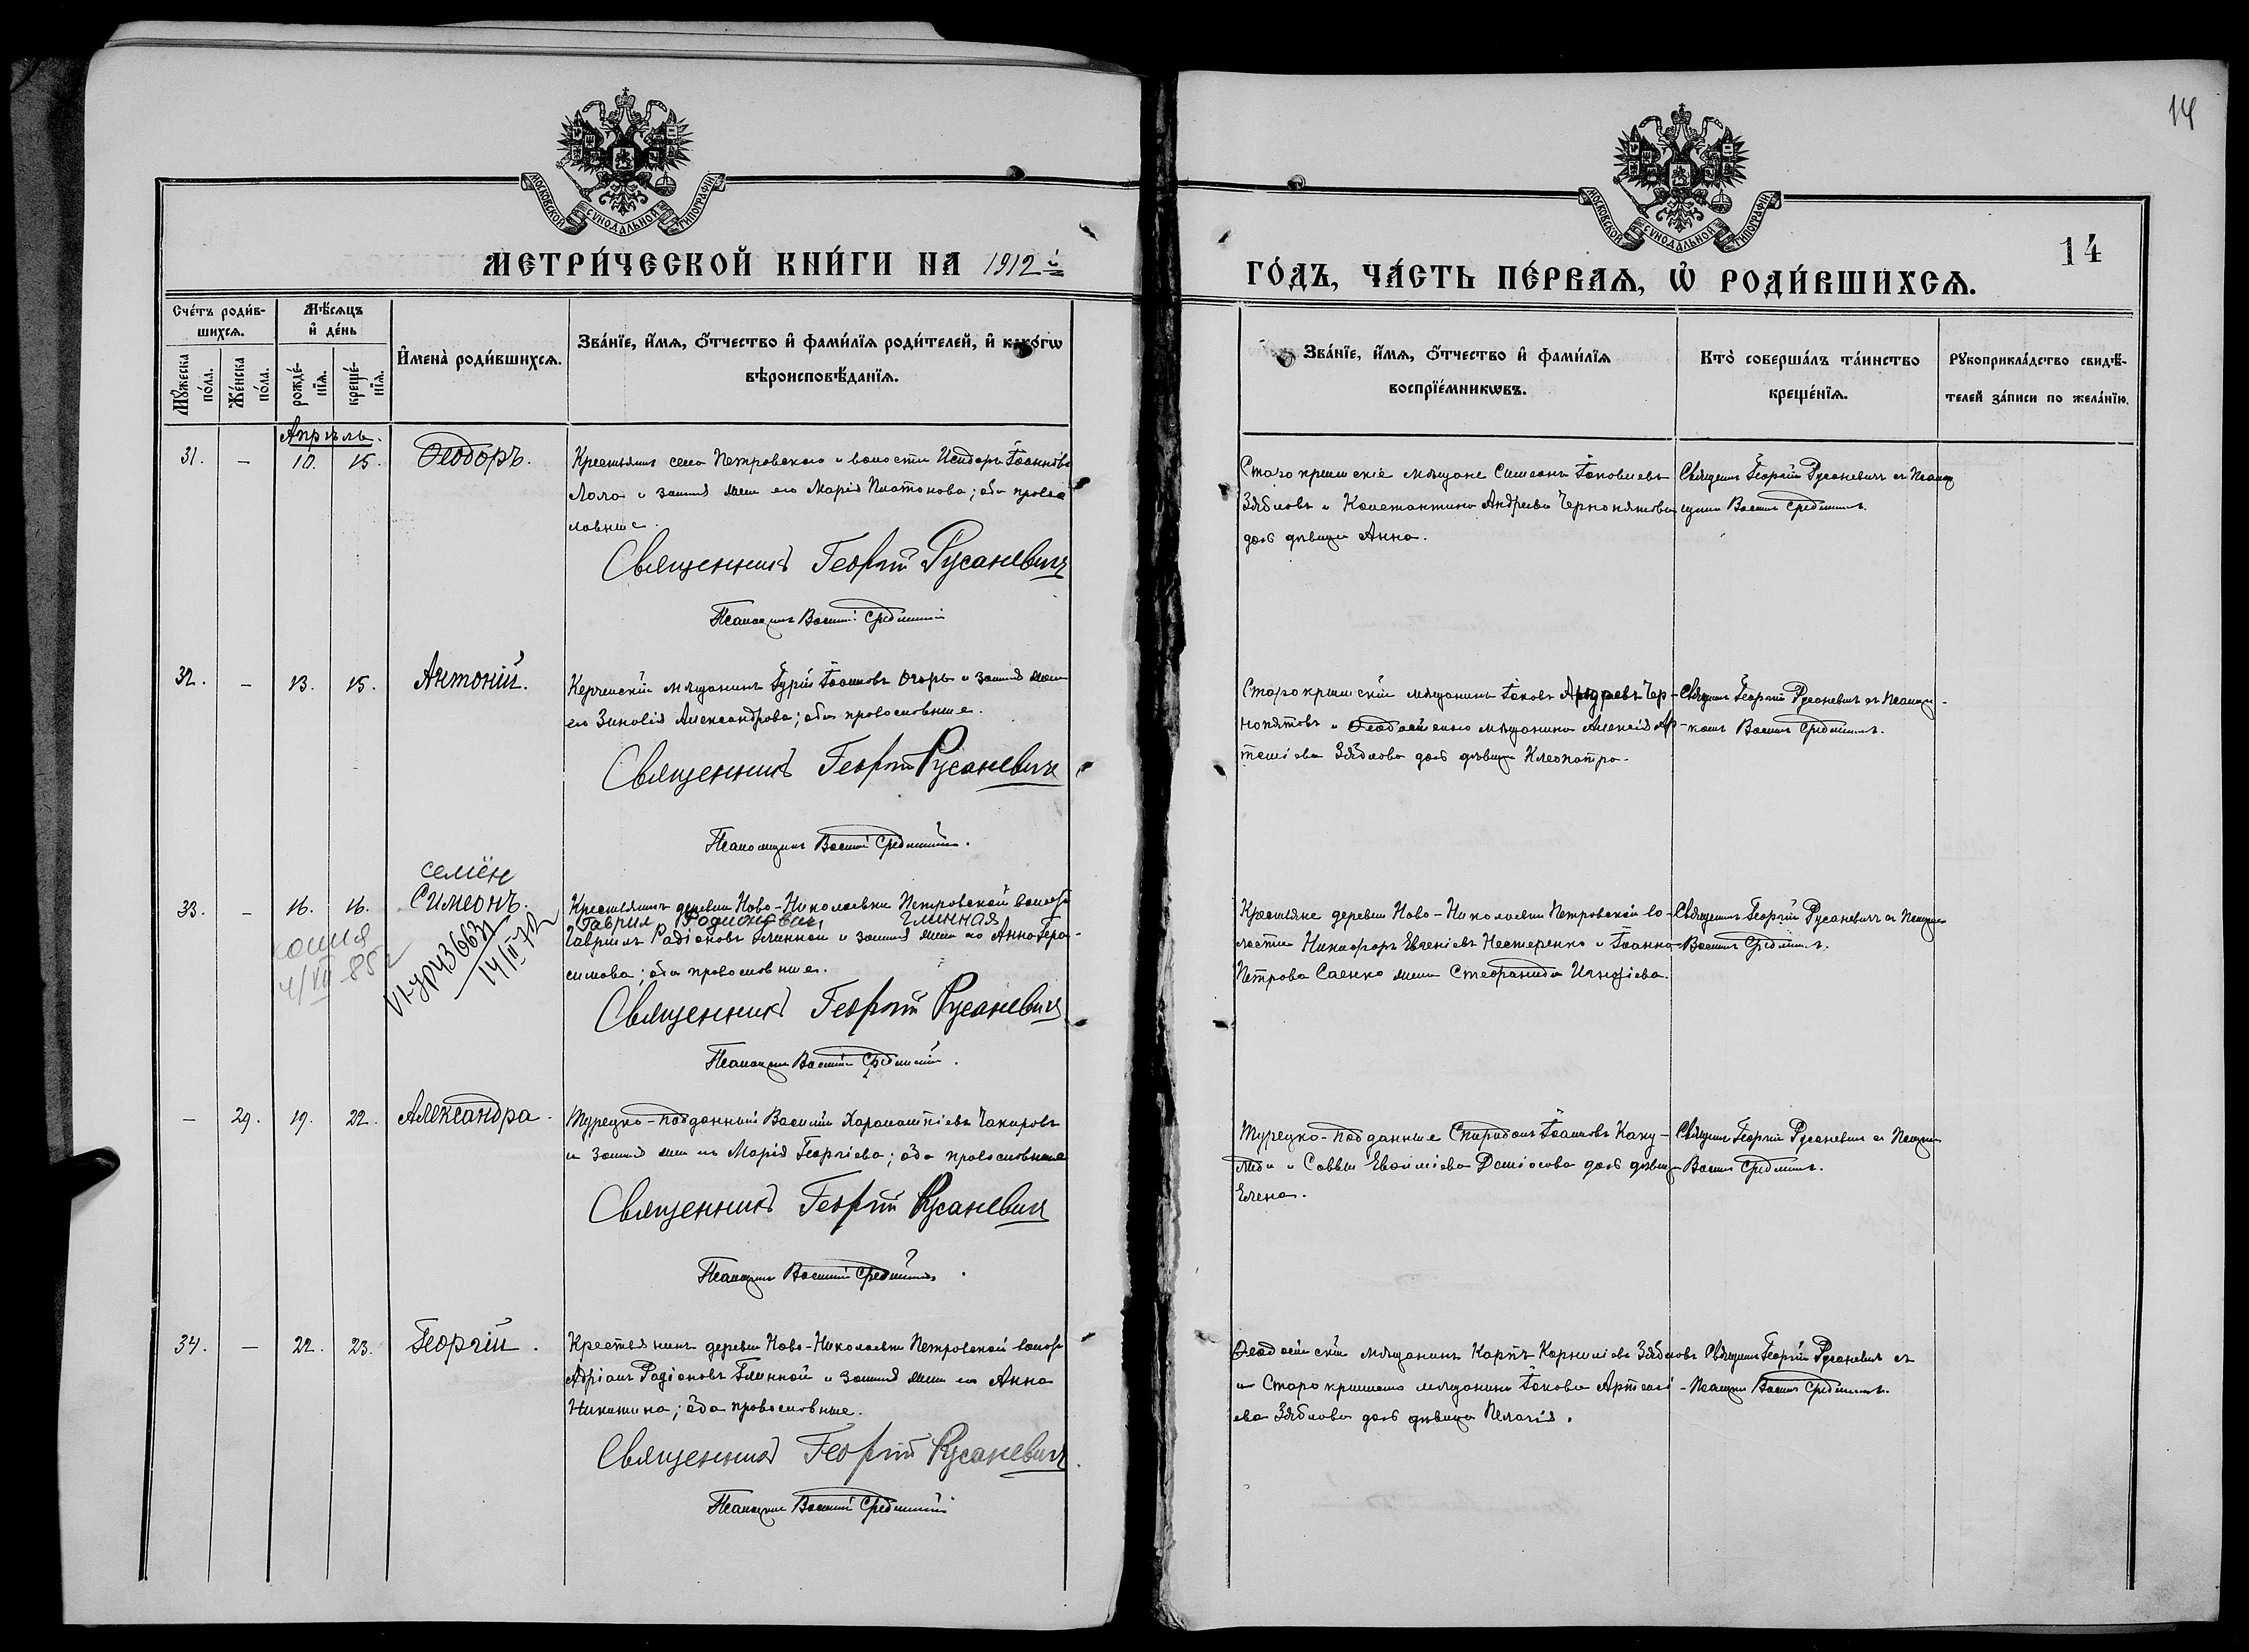 14
МОСКОВСКОЙ СУНОДАЛЬНОЙ ТИПОГРАФІИ
МОСКОВСКОЙ СУНОДАЛЬНОЙ ТИПОГРАФІИ
14
МЕТРИ́ЧЕСКОЙ КНИ́ГИ НА 1912 й
ГО́ДЪ, ЧА́СТЬ ПЕ́РВАѦ, Ѡ҆ РОДИ́ВШИХСѦ.
Сче́тъ роди́в-
шихсѧ.
Мꙋ́жеска по́ла.
Же́нска по́ла.
Мѣ́сѧцъ
и҆ де́нь
рожде́-нїѧ.
креще́-нїѧ.
И҆мена̀ роди́вшихсѧ.
Зва́нїе, и҆́мѧ, ѻ҆́тчество и҆ фами́лїѧ роди́телей, и҆ како́гѡ
вѣроисповѣ́данїѧ.
Зва́нїе, и҆́мѧ, ѻ҆́тчество и҆ фами́лїѧ
воспрїе́мникѡвъ.
Кто̀ соверша́лъ та́инство
креще́нїѧ.
Рꙋкоприкла́дство свидѣ́-
телей за́писи по жела́нїю.
Апрѣль.
31. — 10. 15. Ѳеодоръ.
Крестьянинъ села Петровскаго и волости Исидоръ Іоанновъ
и законная жена его Марія Платонова; оба правосла
вные.
Священникъ Георгій Русаневичъ
Псаломщикъ Василій Срединскій
Старокрымскіе мѣщане Симеонъ Іаковлевъ
Зябловъ и Константина Андреева Чернопятова
дочь дѣвица Анна.
Священникъ Георгій Русаневичъ съ псалом
щикомъ Василіемъ Срединскимъ.
32. — 13. 15. Антоній.
Керченскій мѣщанинъ Гурій Іоанновъ и законная жена
его Зиновія Александрова; оба православные.
Священникъ Георгій Русаневичъ
Псаломщикъ Василій Срединскій.
Старокрымскій мѣщанинъ Іаковъ Андреевъ Чер-
нопятовъ и Ѳеодосійскаго мѣщанина Алексія Ар-
теміева Зяблова дочь дѣвица Клеопатра.
Священникъ Георгій Русаневичъ съ псаломщи-
комъ Василіемъ Срединскимъ.
семён
33. — 16. 16. Симеонъ.
Крестьянинъ деревни Ново-Николаевки Петровской волости
Гаврил Родионович, Глинная
Гавріилъ Радіоновъ Глинной и законная жена его Анна Гера-
симова; оба православные.
копия
4/VII-85г
VI-УР 436631
14/II-72
Священникъ Георгій Русаневичъ
Псаломщикъ Василій Срединскій.
Крестьяне деревни Ново-Николаевки Петровской во-
лости Никифоръ Евгеніевъ Нестеренко и Іоанна
Петрова Саенко жена Стефанида Игнатіева.
Священникъ Георгій Русаневичъ съ псаломщикомъ
Василіемъ Срединскимъ.
— 29. 19. 22. Александра.
Турецко-подданный Василій Харлампіевъ Чакировъ
и законная жена его Марія Георгіева; оба православные
Священникъ Георгій Русаневичъ
Псаломщикъ Василій Срединскій.
Турецко-подданные Спиридонъ Іоанновъ
и Саввы Евѳиміева дочь дѣвица
Елена.
Священникъ Георгій Русаневичъ съ псаломщикомъ
Василіемъ Срединскимъ.
34. — 22. 23. Георгій.
Крестьянинъ деревни Ново-Николаевки Петровской волости
Адріанъ Радіоновъ Глинной и законная жена его Анна
Никитина; оба православные.
Священникъ Георгій Русаневичъ
Псаломщикъ Василій Срединскій
Ѳеодосійскій мѣщанинъ Карпъ Корниліевъ Зябловъ
и Старокрымскаго мѣщанина Іакова Артемі-
ева Зяблова дочь дѣвица Пелагія.
Священникъ Георгій Русаневичъ съ
псаломщикомъ Василіемъ Срединскимъ.